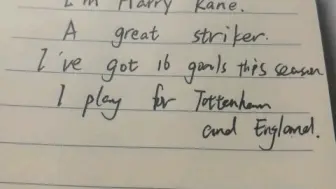 I'm Harry Kane.
A great striker.
I've got 16 goals this season
I play for Tottenham
and England.